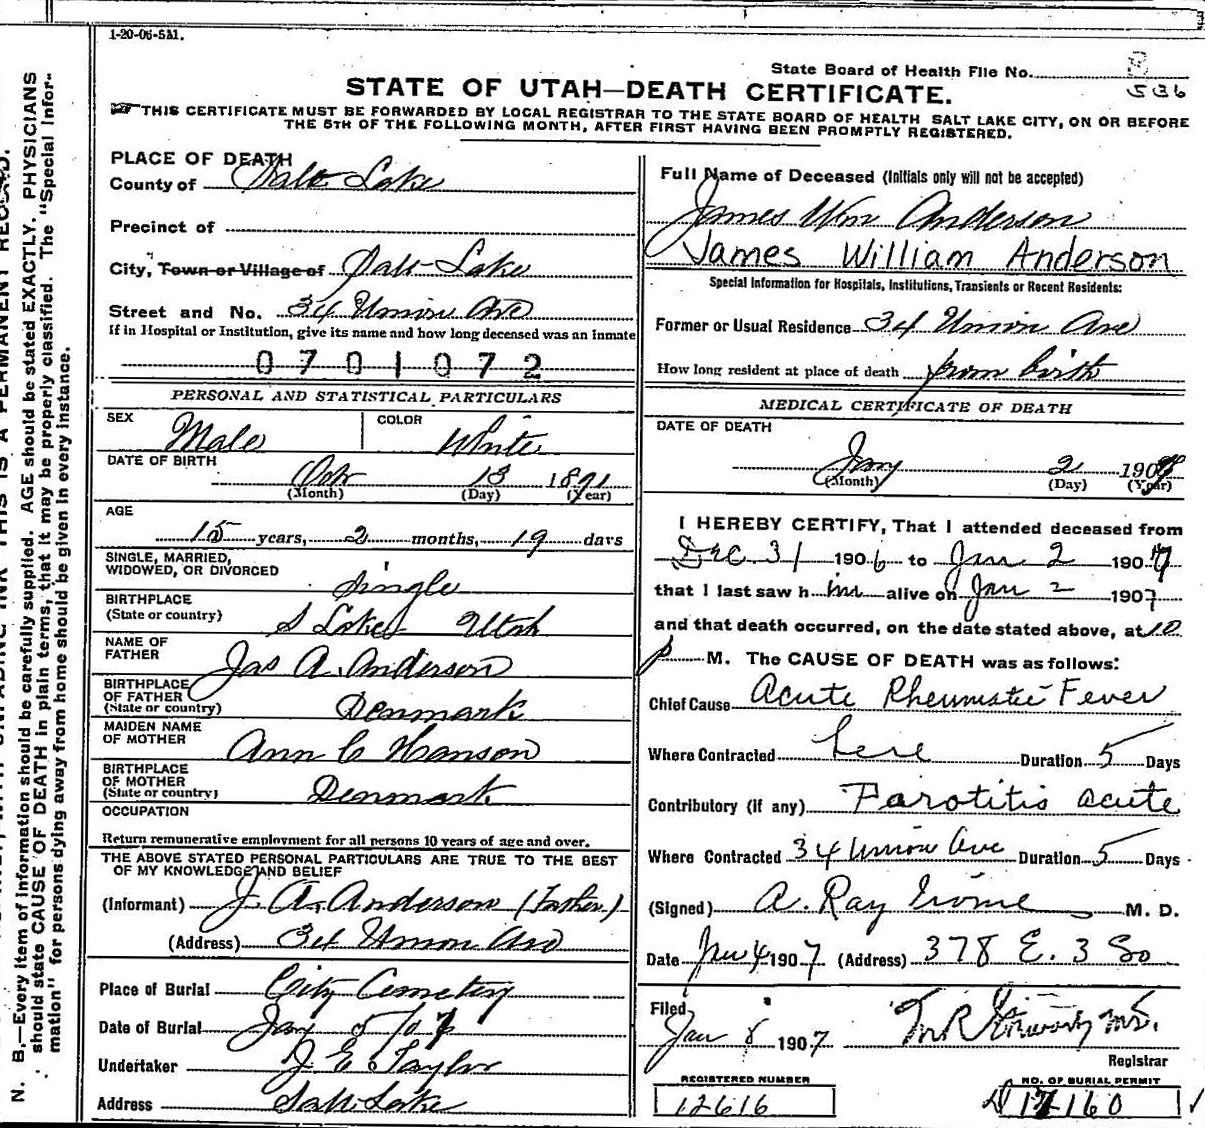 1-20-06-5M.
State Board of Health File No. 536
STATE OF UTAH—DEATH CERTIFICATE.
THIS CERTIFICATE MUST BE FORWARDED BY LOCAL REGISTRAR TO THE STATE BOARD OF HEALTH SALT LAKE CITY, ON OR BEFORE
THE 5TH OF THE FOLLOWING MONTH, AFTER FIRST HAVING BEEN PROMPTLY REGISTERED.
PLACE OF DEATH
County of Salt Lake
Precinct of
City, Town or Village of Salt Lake
Street and No. 34 Union Ave
If in Hospital or Institution, give its name and how long deceased was an inmate
0701072
PERSONAL AND STATISTICAL PARTICULARS
SEX Male COLOR White
DATE OF BIRTH Oct 13 1891
(Month) (Day) (Year)
AGE
15 years, 2 months, 19 days
SINGLE, MARRIED,
WIDOWED, OR DIVORCED Single
BIRTHPLACE
(State or country) S Lake Utah
NAME OF
FATHER Jas A. Anderson
BIRTHPLACE
OF FATHER
(State or country) Denmark
MAIDEN NAME
OF MOTHER Ann C Hanson
BIRTHPLACE
OF MOTHER
(State or country) Denmark
OCCUPATION
Return remunerative employment for all persons 10 years of age and over.
THE ABOVE STATED PERSONAL PARTICULARS ARE TRUE TO THE BEST
OF MY KNOWLEDGE AND BELIEF
(Informant) J. A. Anderson (Father)
(Address) 34 Union Ave
Place of Burial City Cemetery
Date of Burial Jany 5/07
Undertaker J. E. Taylor
Address Salt Lake
Full Name of Deceased (Initials only will not be accepted)
James Wm Anderson
James William Anderson
Special Information for Hospitals, Institutions, Transients or Recent Residents:
Former or Usual Residence 34 Union Ave
How long resident at place of death from birth
MEDICAL CERTIFICATE OF DEATH
DATE OF DEATH
Jany 2 1907
(Month) (Day) (Year)
I HEREBY CERTIFY, That I attended deceased from
Dec. 31 1906 to Jan 2 1907
that I last saw him alive on Jan 2 1907
and that death occurred, on the date stated above, at 10
p M. The CAUSE OF DEATH was as follows:
Chief Cause Acute Rheumatic Fever
Where Contracted here Duration 5 Days
Contributory (if any) Parotitis acute
Where Contracted 34 Union Ave Duration 5 Days
(Signed) A. Ray Irvine M. D.
Date Jan 4 1907 (Address) 378 E. 3 So
Filed
Jan 8 1907
Registrar
REGISTERED NUMBER
12616
NO. OF BURIAL PERMIT
160
N. B.—Every item of information should be carefully supplied. AGE should be stated EXACTLY. PHYSICIANS
should state CAUSE OF DEATH in plain terms, that it may be properly classified. The "Special Infor-
mation" for persons dying away from home should be given in every instance.